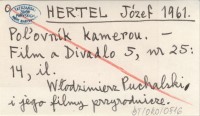 HERTEL Józef 1961.
Poľovník kamerou. —
Film a Divadlo 5, nr 25:
14, il.
Włodzimierz Puchalski
i jego filmy przyrodnicze.